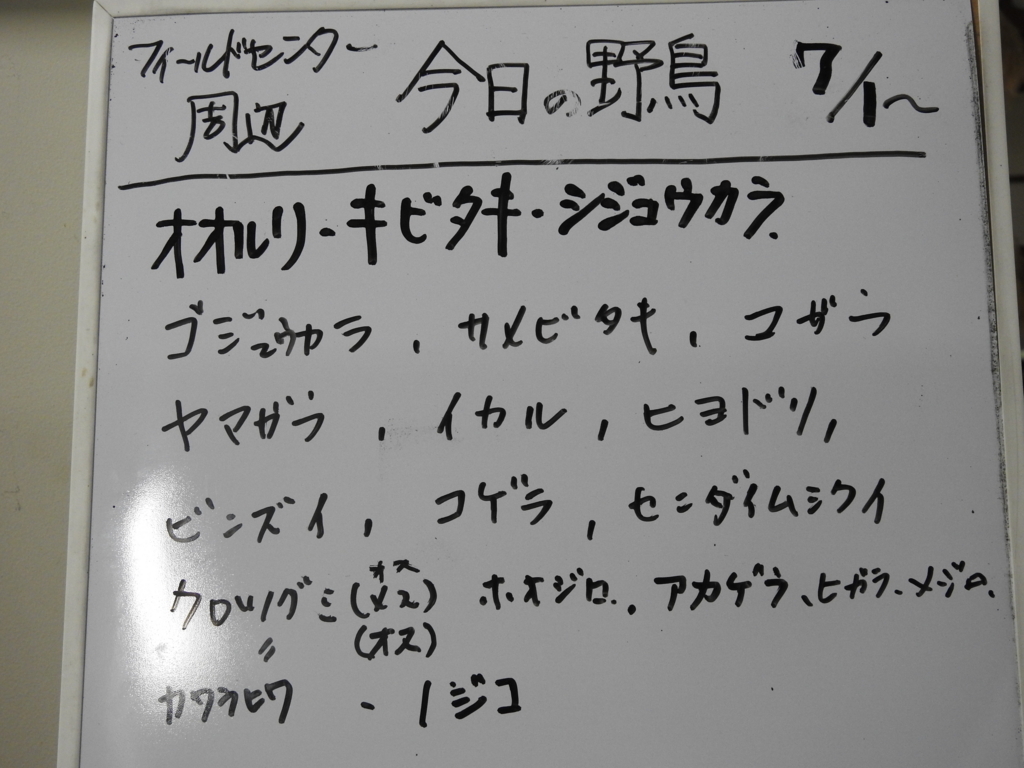 フィールドセンター
周辺
今日の野鳥 7/1〜
オオルリ・キビタキ・シジュウカラ.
ゴジュウカラ, サメビタキ, コガラ
ヤマガラ, イカル, ヒヨドリ,
ビンズイ, コゲラ, センダイムシクイ
オス
クロツグミ(メス) ホオジロ. アカゲラ、ヒガラ、メジロ.
〃 (オス)
カワラヒワ ・ノジコ